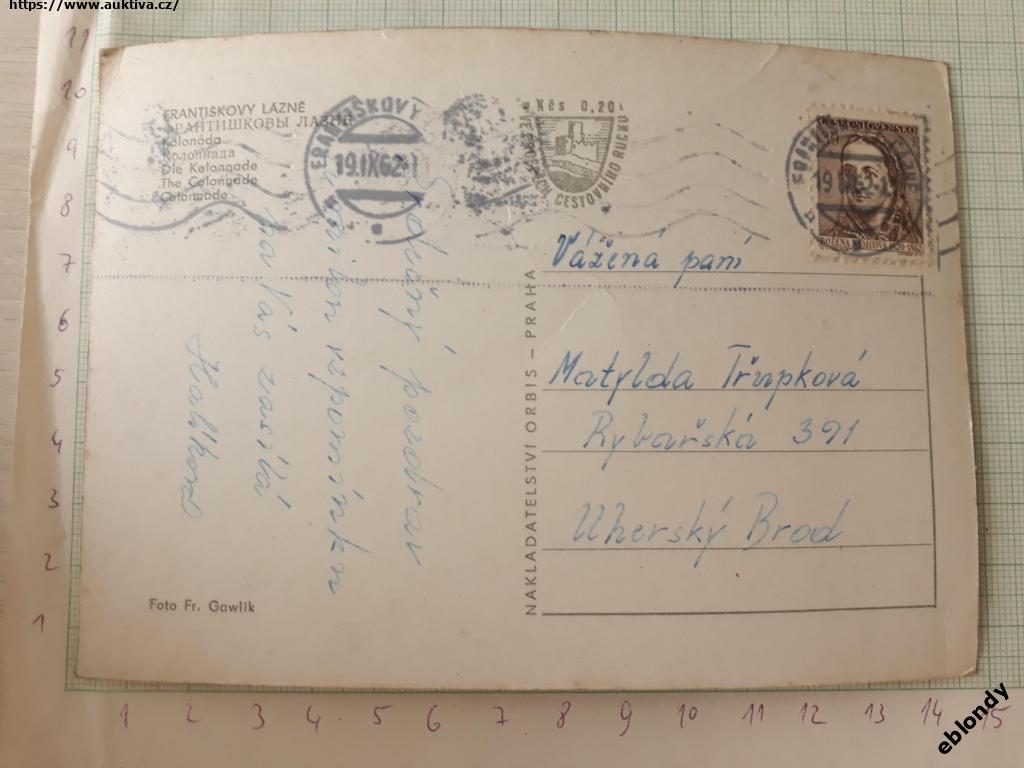 https://www.auktiva.cz/
FRANTIŠKOVY LÁZNĚ
ФРАНТИШКОВЫ ЛАЗНЕ
Kolonáda
Колоннада
Die Kolonnade
The Colonnade
Colonnade
FRANTIŠKOVY
19.IX.62-
Kčs 0,20
CESTOVNÍHO RUCHU
ČESKOSLOVENSKO
BOŽENA NĚMCOVÁ 1820-1862
Srdečný pozdrav
vzpomínku
na Vás zasílá
Vážená paní
Matylda Třupková
Rybářská 391
Uherský Brod
NAKLADATELSTVÍ ORBIS – PRAHA
Foto Fr. Gawlik
11
10
9
8
7
6
5
4
3
2
1
1 2 3 4 5 6 7 8 9 10 11 12 13 14 15
eblondy